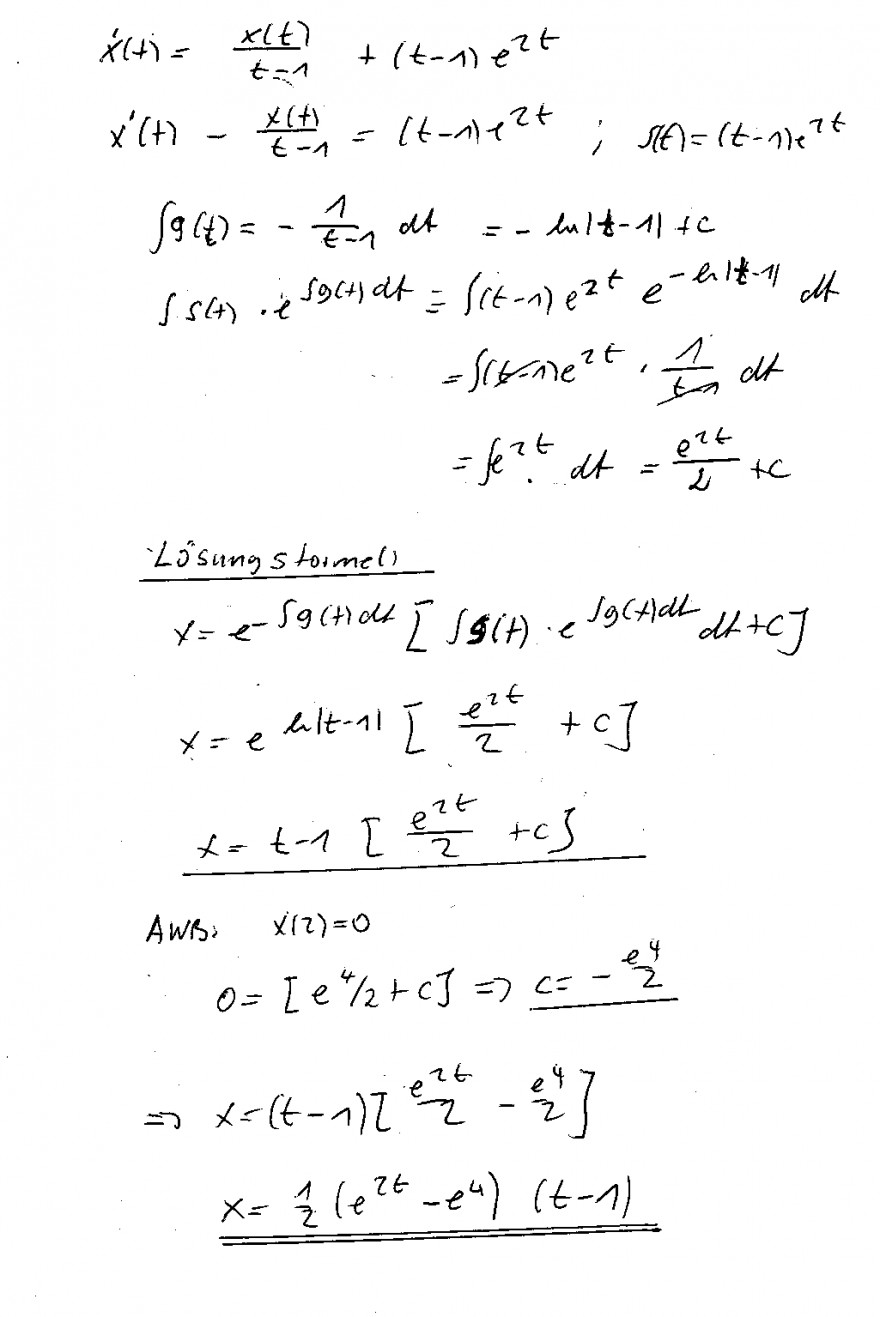 ẋ(t) = x(t)/(t-1) + (t-1) e^{2t}
x'(t) - x(t)/(t-1) = (t-1) e^{2t} ; s(t) = (t-1) e^{2t}
∫g(t) = - 1/(t-1) dt = - ln|t-1| + c
∫ s(t) · e^{∫g(t) dt} = ∫(t-1) e^{2t} e^{-ln|t-1|} dt
= ∫(t-1) e^{2t} · 1/(t-1) dt
= ∫e^{2t} dt = e^{2t}/2 + c
Lösungsformel
x = e^{-∫g(t) dt} [ ∫s(t) · e^{∫g(t) dt} dt + C ]
x = e^{ln|t-1|} [ e^{2t}/2 + c ]
x = t-1 [ e^{2t}/2 + c ]
AWB: x(2)=0
0 = [ e^4/2 + c ] => c = - e^4/2
=> x = (t-1) [ e^{2t}/2 - e^4/2 ]
x = 1/2 (e^{2t} - e^4) (t-1)